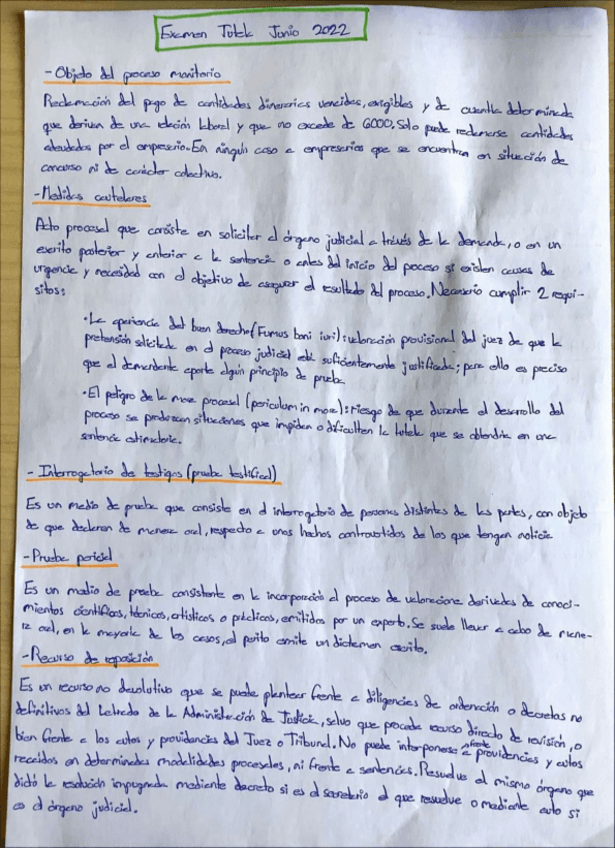 Examen Tutela Junio 2022
- Objeto del proceso monitorio
Reclamación del pago de cantidades dinerarias vencidas, exigibles y de cuantía determinada
que derivan de una relación laboral y que no excede de 6000. Solo puede reclamarse cantidades
adeudadas por el empresario. En ningún caso a empresarios que se encuentren en situación de
concurso ni de carácter colectivo.
- Medidas cautelares
Acto procesal que consiste en solicitar al órgano judicial a través de la demanda, o en un
escrito posterior y anterior a la sentencia o antes del inicio del proceso si existen causas de
urgencia y necesidad con el objetivo de asegurar el resultado del proceso. Necesario cumplir 2 requi-
sitos:
• La apariencia del buen derecho (Fumus boni iuri): valoración provisional del juez de que la
pretensión solicitada en el proceso judicial está suficientemente justificada; para ello es preciso
que el demandante aporte algún principio de prueba
• El peligro de la mora procesal (periculum in mora): riesgo de que durante el desarrollo del
proceso se produzcan situaciones que impiden o dificulten la tutela que se obtendría en una
sentencia estimatoria.
- Interrogatorio de testigos (prueba testifical)
Es un medio de prueba que consiste en el interrogatorio de personas distintas de las partes, con objeto
de que declaren de manera oral, respecto a unos hechos controvertidos de los que tengan noticia
- Prueba pericial
Es un medio de prueba consistente en la incorporación al proceso de valoraciones derivadas de conoci-
mientos científicos, técnicos, artísticos o prácticos, emitidos por un experto. Se suele llevar a cabo de mane-
ra oral, en la mayoría de los casos, el perito emite un dictamen escrito.
- Recurso de reposición
Es un recurso no devolutivo que se puede plantear frente a diligencias de ordenación o decretos no
definitivos del Letrado de la Administración de Justicia, salvo que proceda recurso directo de revisión, o
bien frente a los autos y providencias del Juez o Tribunal. No puede interponerse frente a providencias y autos
recaídos en determinadas modalidades procesales, ni frente a sentencias. Resuelve el mismo órgano que
dictó la resolución impugnada mediante decreto si es el secretario el que resuelve o mediante auto si
es el órgano judicial.